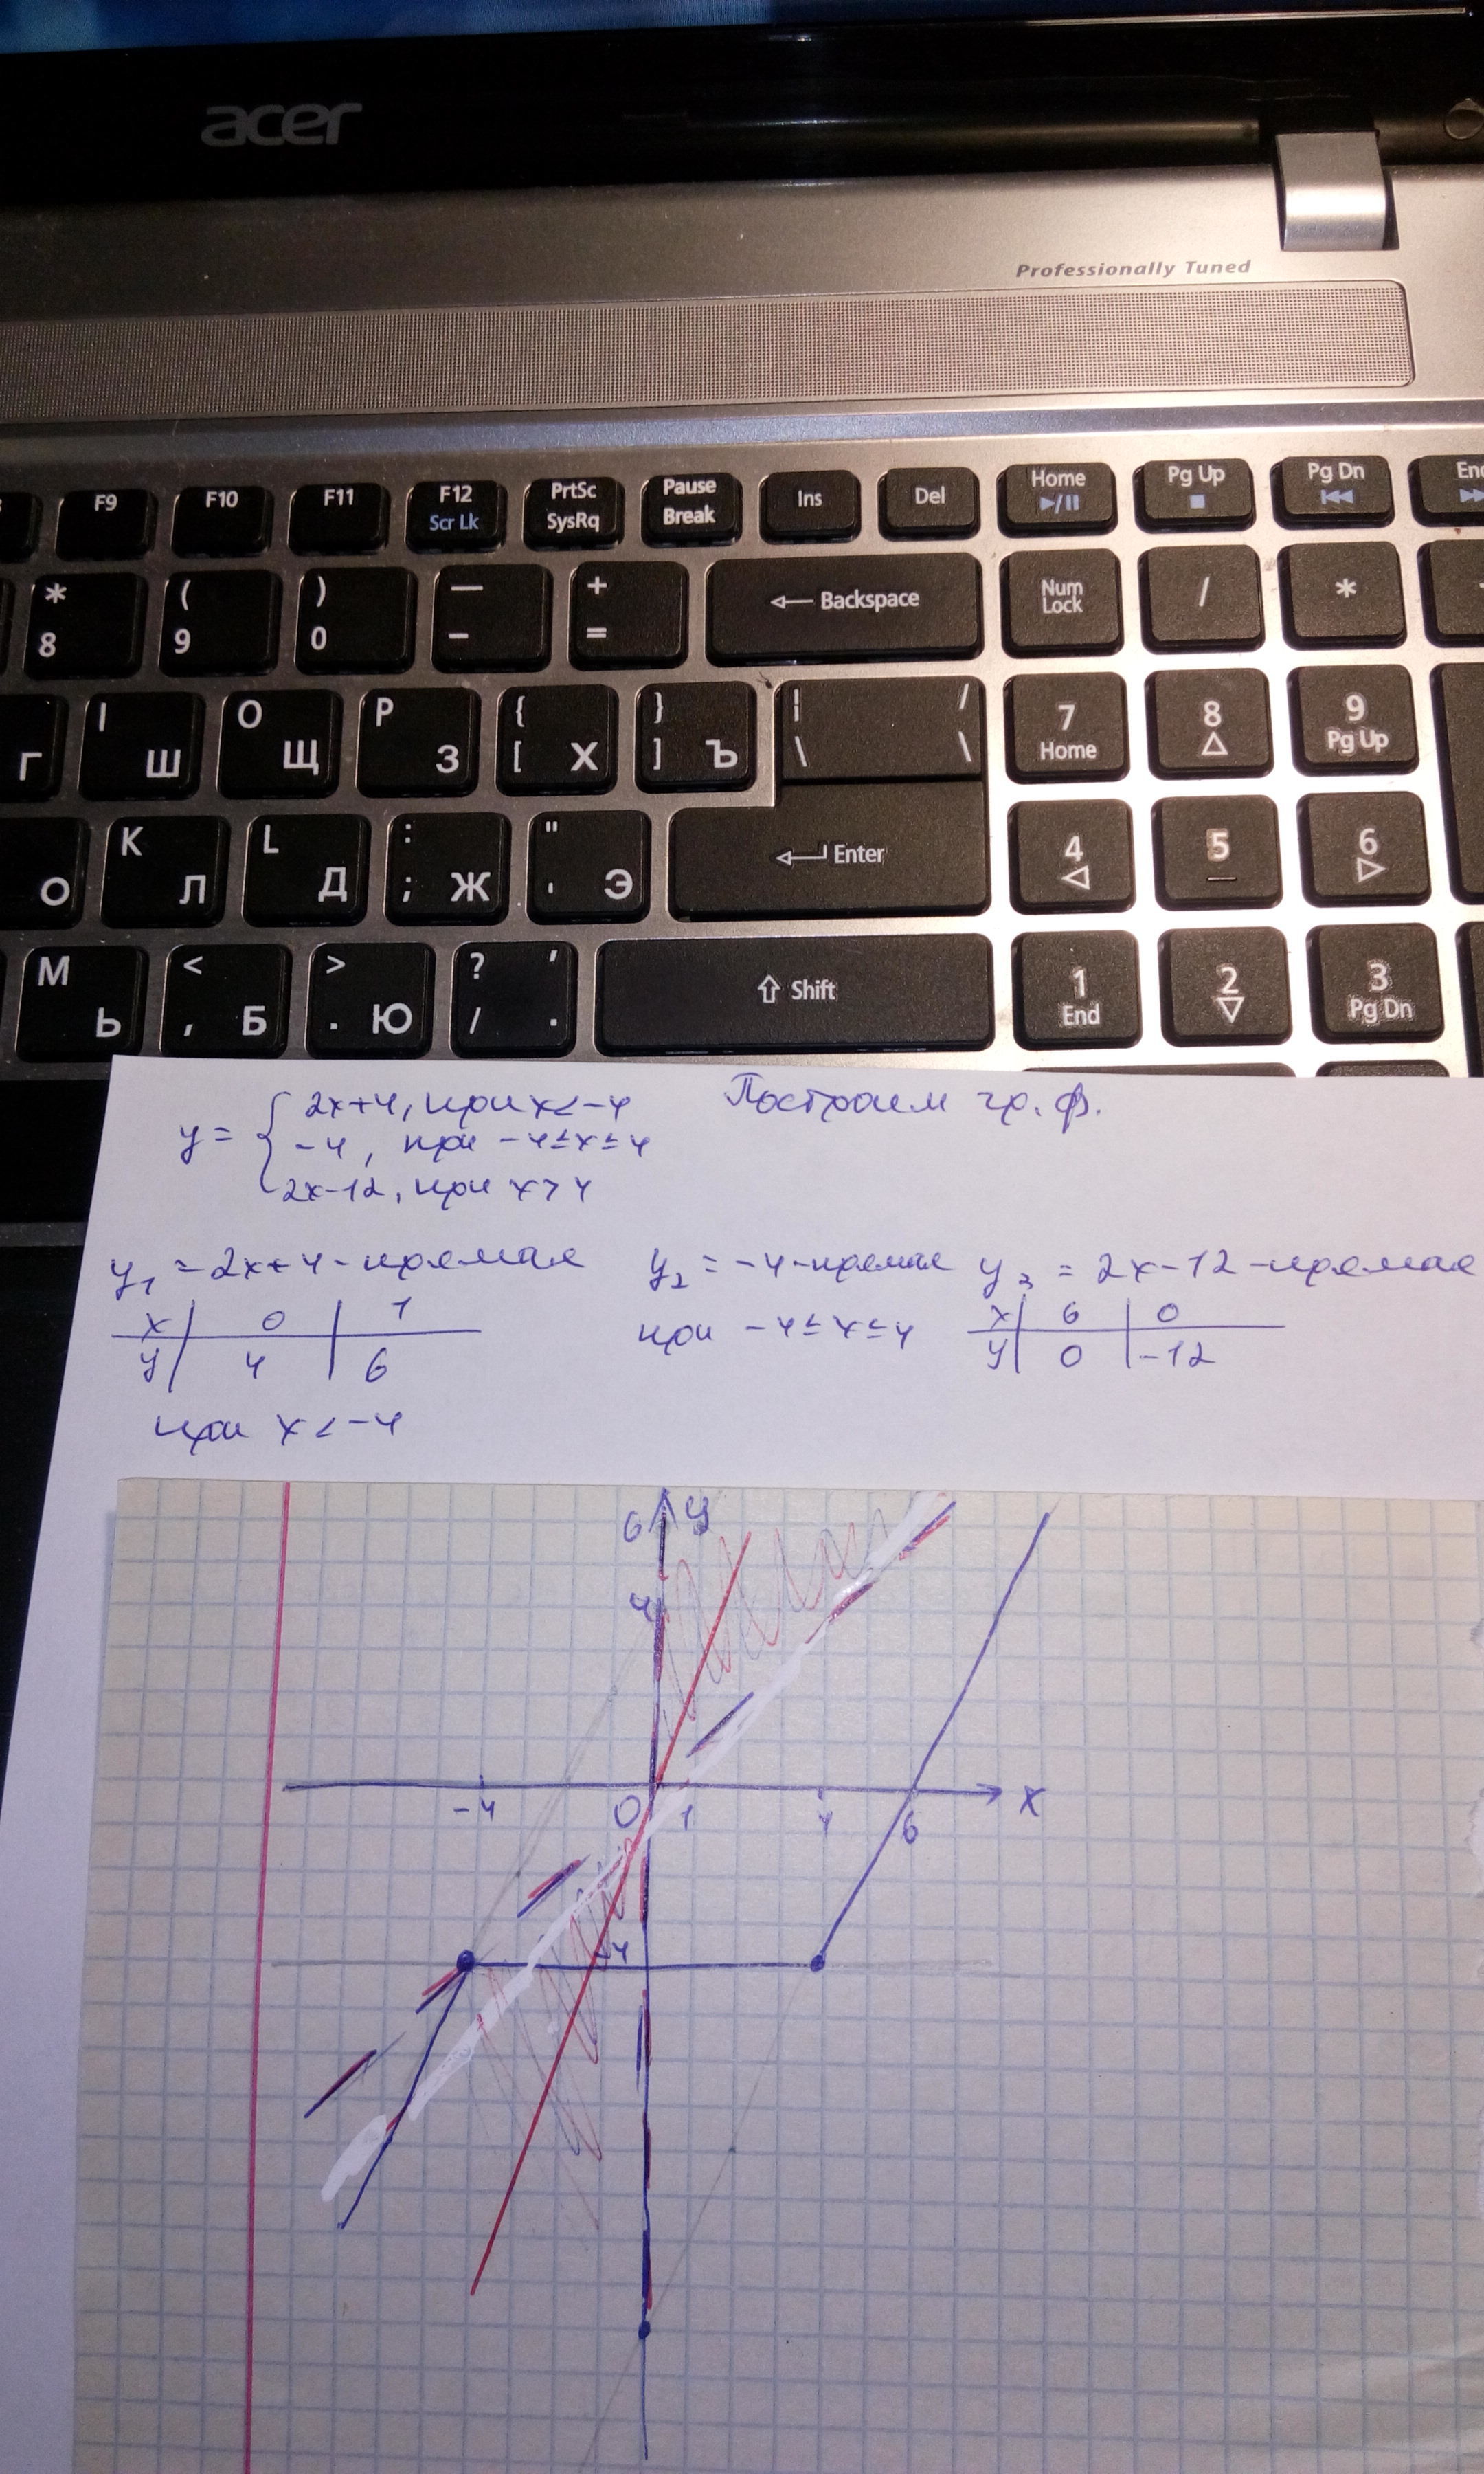 acer
Professionally Tuned
F9 F10 F11 F12 PrtSc Pause Ins Del Home Pg Up Pg Dn
Scr Lk SysRq Break
* ( ) — + ← Backspace Num Lock / *
8 9 0 - =
I O P { } | / 7 8 9
Г Ш Щ З [ Х ] Ъ \ \ Home Pg Up
K L : " Enter 4 5 6
О Л Д ; Ж ' Э
M < > ? , Shift 1 2 3
Ь , Б . Ю / . End Pg Dn
y = { 2x+4, при x < -4 Построим гр. ф.
-4, при -4 ≤ x ≤ 4
2x-12, при x > 4
y₁ = 2x+4 - прямая y₂ = -4 - прямая y₃ = 2x-12 - прямая
x | 0 | 1 при -4 ≤ x ≤ 4 x | 6 | 0
y | 4 | 6 y | 0 | -12
при x < -4
6 y
4
-4 0 1 4 6 x
-4